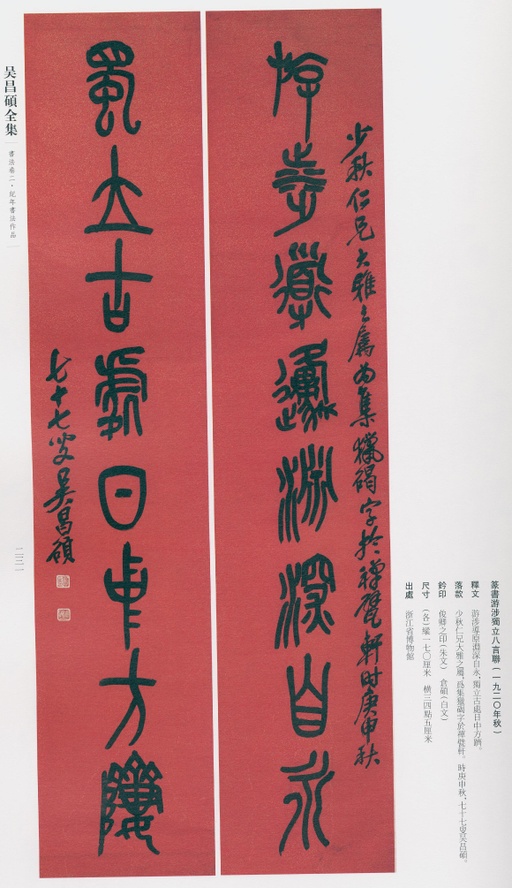 游涉導原淵深自永
少秋仁兄大雅之屬為集獵碣字於禪甓軒時庚申秋
獨立古處日中方隮
七十七叟吴昌碩
篆書游涉獨立八言聯（一九二〇年秋）
釋文　游涉導原淵深自永，獨立古處日中方隮。
落款　少秋仁兄大雅之屬，爲集獵碣字於禪甓軒。時庚申秋，七十七叟吴昌碩。
鈐印　俊卿之印（朱文）　倉碩（白文）
尺寸　（各）縱一七〇厘米　横三四點五厘米
出處　浙江省博物館
吴昌碩全集
書法卷二·紀年書法作品